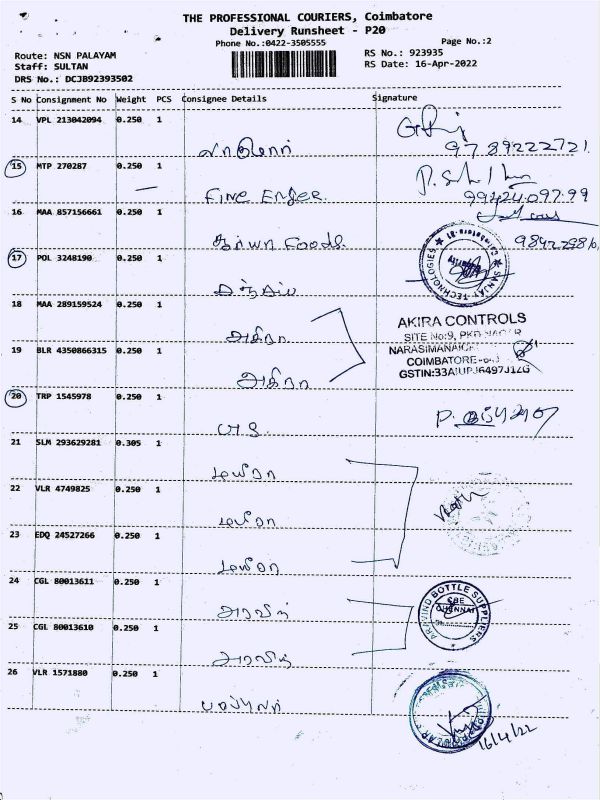 THE PROFESSIONAL COURIERS, Coimbatore
Delivery Runsheet - P20
Phone No.:0422-3505555
Page No.:2
Route: NSN PALAYAM
RS No.: 923935
Staff: SULTAN
RS Date: 16-Apr-2022
DRS No.: DCJB92393502
S No Consignment No Weight PCS Consignee Details Signature
14 VPL 213042094 0.250 1
97 89222721
15 MTP 270287 0.250 1
Fine Enger.
99424 097 99
16 MAA 857156661 0.250 1
Foods
17 POL 3248190 0.250 1
SANJAI TECHNOLOGIES
18 MAA 289159524 0.250 1
அதிரா
AKIRA CONTROLS
SITE No:9, PKD NAGAR
19 BLR 4350866315 0.250 1
NARASIMANAICK
COIMBATORE
அதிரா
GSTIN:33AIUPJ6497J1ZG
20 TRP 1545978 0.250 1
P.
21 SLM 293629281 0.305 1
22 VLR 4749825 0.250 1
23 EDQ 24527266 0.250 1
24 CGL 80013611 0.250 1
அரவிந்
ARAVIND BOTTLE SUPPLIERS
CHENNAI
25 CGL 80013610 0.250 1
அரவிந்
26 VLR 1571880 0.250 1
பாப்புலர்
16/4/22